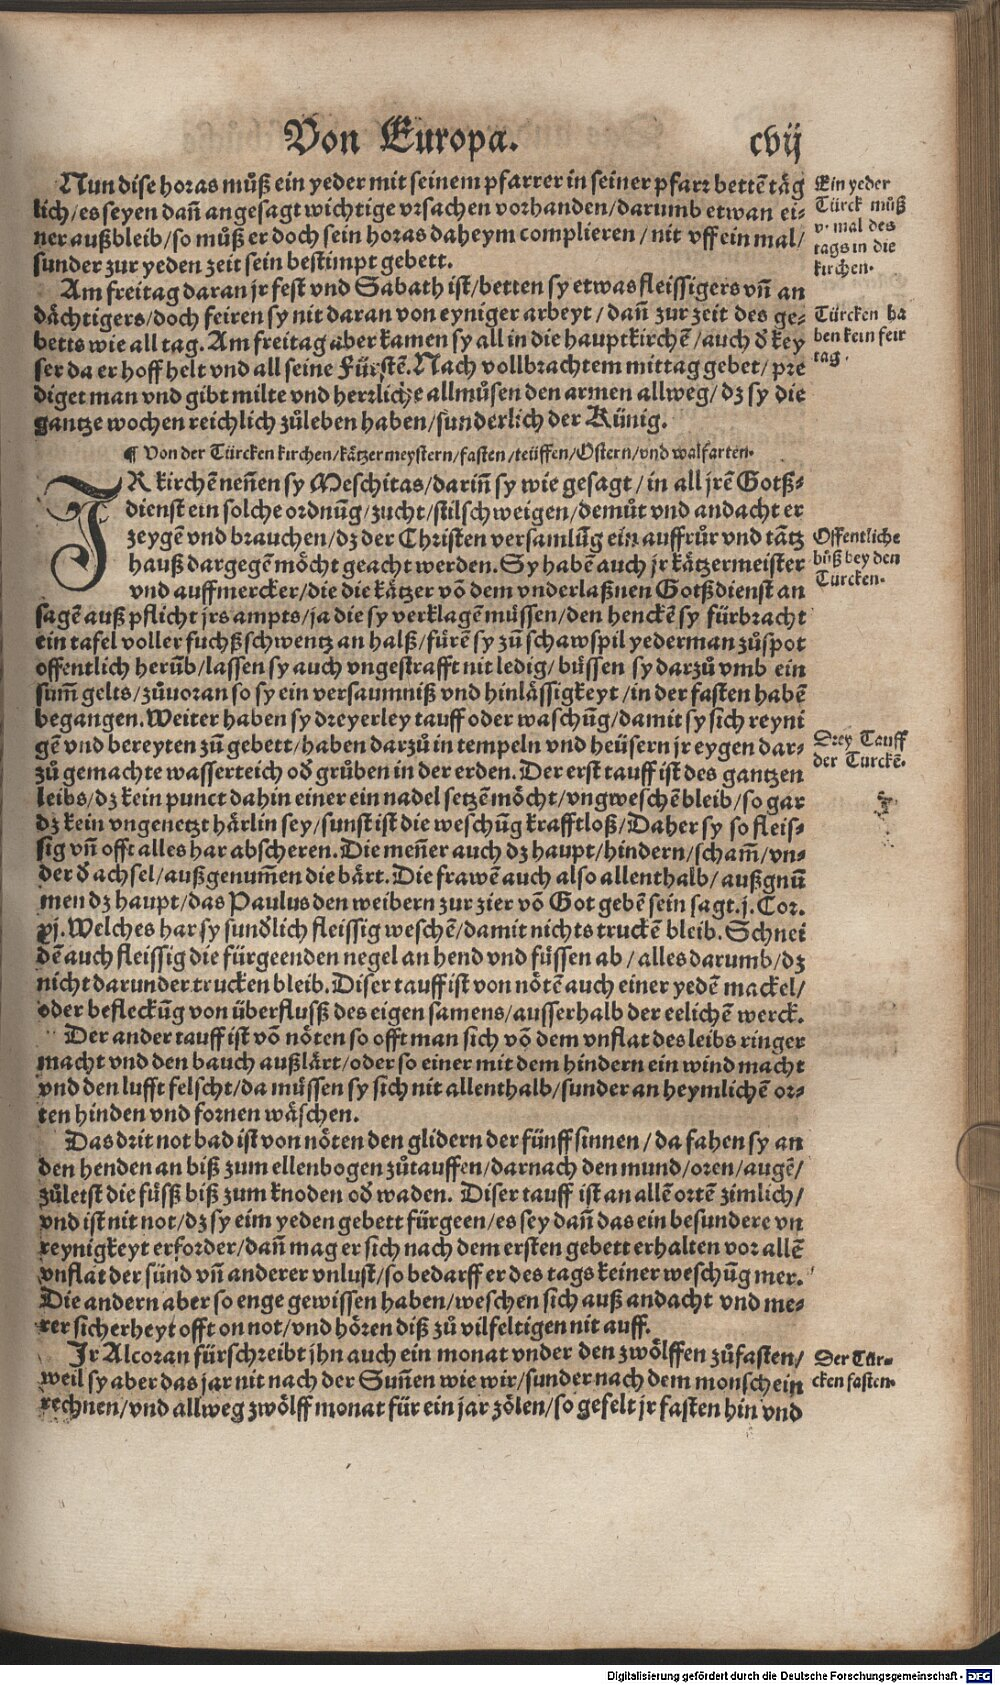 Von Europa.
cvij
Nun dise horas můß ein yeder mit seinem pfarrer in seiner pfarr bettē täg
lich/es seyen dañ angesagt wichtige vrsachen vorhanden/darumb etwan ei-
ner außbleib/so můß er doch sein horas daheym complieren/nit vff ein mal/
sunder zur yeden zeit sein bestimpt gebett.
Am freitag daran jr fest vnd Sabath ist/betten sy etwas fleissigers vñ an
dächtigers/doch feiren sy nit daran von eyniger arbeyt/dañ zur zeit des ge-
betts wie all tag. Am freitag aber kamen sy all in die hauptkirchē/auch d̄ key
ser da er hoff helt vnd all seine Fürstē. Nach vollbrachtem mittag gebet/pre
diget man vnd gibt milte vnd herrliche allmůsen den armen allweg/dz sy die
gantze wochen reichlich zůleben haben/sunderlich der Künig.
¶ Von der Türcken kirchen/kätzermeystern/fasten/teüffen/Ostern/vnd walfarten.
JR kirchē neñen sy Meschitas/dariñ sy wie gesagt/in all jrē Gotß-
dienst ein solche ordnūg/zucht/stilschweigen/demůt vnd andacht er
zeygē vnd brauchen/dz der Christen versamlūg ein auffrůr vnd tātz
hauß dargegē möcht geacht werden. Sy habē auch jr kätzermeister
vnd auffmercker/die die kätzer vō dem vnderlaßnen Gotßdienst an
sagē auß pflicht jrs ampts/ja die sy verklagē müssen/den henckē sy fürbracht
ein tafel voller fuchßschwentz an halß/fürē sy zū schawspil yederman zůspot
offentlich herūb/lassen sy auch vngestrafft nit ledig/büssen sy darzů vmb ein
sum̄ gelts/zůuoran so sy ein versaumniß vnd hinlässigkeyt/in der fasten habē
begangen. Weiter haben sy dreyerley tauff oder waschūg/damit sy sich reyni
gē vnd bereyten zū gebett/haben darzů in tempeln vnd heüsern jr eygen dar-
zů gemachte wasserteich od̄ grůben in der erden. Der erst tauff ist des gantzen
leibs/dz kein punct dahin einer ein nadel setzē möcht/vngweschē bleib/so gar
dz kein vngenetzt härlin sey/sunst ist die weschūg krafftloß/Daher sy so fleis-
sig vñ offt alles har abscheren. Die meñer auch dz haupt/hindern/scham̄/vn-
der d̄ achsel/außgenum̄en die bärt. Die frawē auch also allenthalb/außgnū
men dz haupt/das Paulus den weibern zur zier vō Got gebē sein sagt.j.Cor.
xj. Welches har sy sund̄lich fleissig weschē/damit nichts truckē bleib. Schnei
dē auch fleissig die fürgeenden negel an hend vnd füssen ab/alles darumb/dz
nicht darunder trucken bleib. Diser tauff ist von nötē auch einer yedē mackel/
oder befleckūg von überflusß des eigen samens/ausserhalb der eelichē werck.
Der ander tauff ist vō nöten so offt man sich vō dem vnflat des leibs ringer
macht vnd den bauch außlärt/oder so einer mit dem hindern ein wind macht
vnd den lufft felscht/da müssen sy sich nit allenthalb/sunder an heymlichē or-
ten hinden vnd fornen wäschen.
Das drit not bad ist von nöten den glidern der fünff sinnen/da fahen sy an
den henden an biß zum ellenbogen zůtauffen/darnach den mund/oren/augē/
zůletst die füsß biß zum knoden od̄ waden. Diser tauff ist an allē ortē zimlich/
vnd ist nit not/dz sy eim yeden gebett fürgeen/es sey dañ das ein besundere vn
reynigkeyt erforder/dañ mag er sich nach dem ersten gebett erhalten vor allē
vnflat der sünd vñ anderer vnlust/so bedarff er des tags keiner weschūg mer.
Die andern aber so enge gewissen haben/weschen sich auß andacht vnd me-
rer sicherheyt offt on not/vnd hören diß zů vilfeltigen nit auff.
Jr Alcoran fürschreibt jhn auch ein monat vnder den zwölffen zůfasten/
weil sy aber das jar nit nach der Suñen wie wir/sunder nach dem monschein
rechnen/vnd allweg zwölff monat für ein jar zölen/so gefelt jr fasten hin vnd
Ein yeder
Türck můß
v. mal des
tags in die
kirchen.
Türcken ha
ben kein feir
tag.
Offentliche
bůß bey den
Türcken.
Drey Tauff
der Turckē.
Der Tür-
cken fasten.
Digitalisierung gefördert durch die Deutsche Forschungsgemeinschaft - DFG